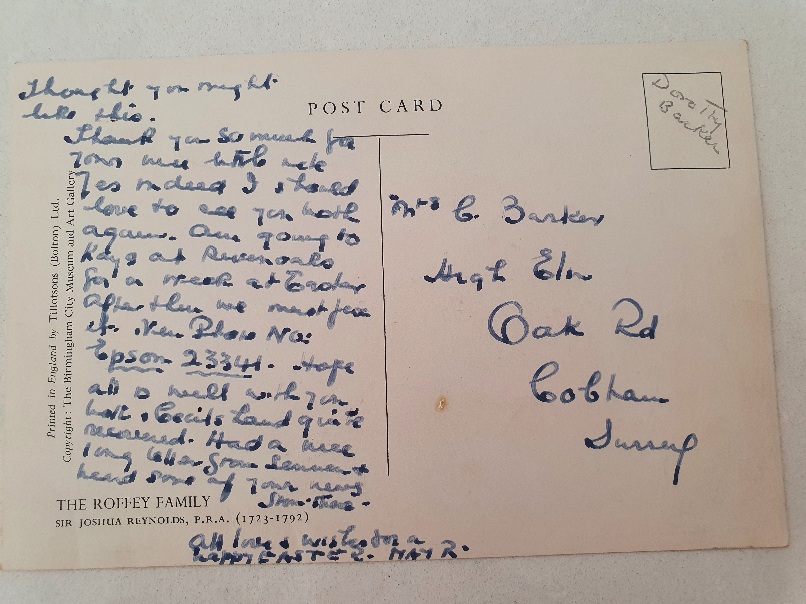 Thought you might
like this.
Thank you so much for
your nice little note
Yes indeed I should
love to see you both
again. Am going to
Kays at
for a week at Easter
after then we must fix
it. New Phone No:
Epsom 23341. Hope
all is well with you
both & Cecils hand quite
recovered. Had a nice
long letter from &
heard some of your news
from there -
All love & wishes for a
HAPPY EASTER. MAY R.
POST CARD
Dorothy
Barker
Mrs C. Barker
High Elm
Oak Rd
Cobham
Surrey
Printed in England by Tillotsons (Bolton) Ltd.
Copyright: The Birmingham City Museum and Art Gallery
THE ROFFEY FAMILY
SIR JOSHUA REYNOLDS, P.R.A. (1723-1792)